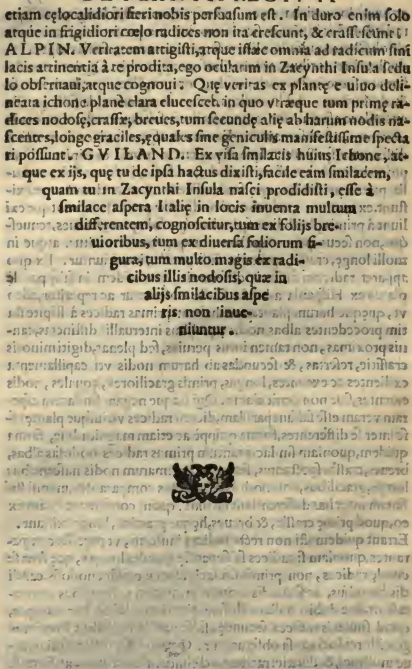 etiam cęlo calidiori fieri nobis persuasum est. In duro enim solo
atque in frigidiori cœlo radices non ita crescunt, & crassescunt.
ALPIN. Veritatem attigisti, atque istæc omnia ad radicum smi
lacis attinentia à te prodita, ego ocularim in Zacynthi Insula sedu
lo obseruaui, atque cognoui: Quę veritas ex plantę e uiuo deli-
neata ichone planè clara elucescet, in quo vtræque tum primę ra-
dices nodosę, crassæ, breues, tum secundę alię ab harum nodis na-
scentes, longe graciles, ęquales sine geniculis manifestissime specta
ri possunt. GVILAND. Ex visa smilacis huius Ichone, at-
que ex ijs, quę tu de ipsa hactus dixisti, facile eam smilacem,
quam tu in Zacynthi Insula nasci prodidisti, esse à
smilace aspera Italię in locis inuenta multum
differentem, cognoscitur, tum ex folijs bre-
uioribus, tum ex diuersa foliorum fi-
gura, tum multo magis ex radi-
cibus illis nodosis, quæ in
alijs smilacibus aspe
ris non inue-
niuntur.